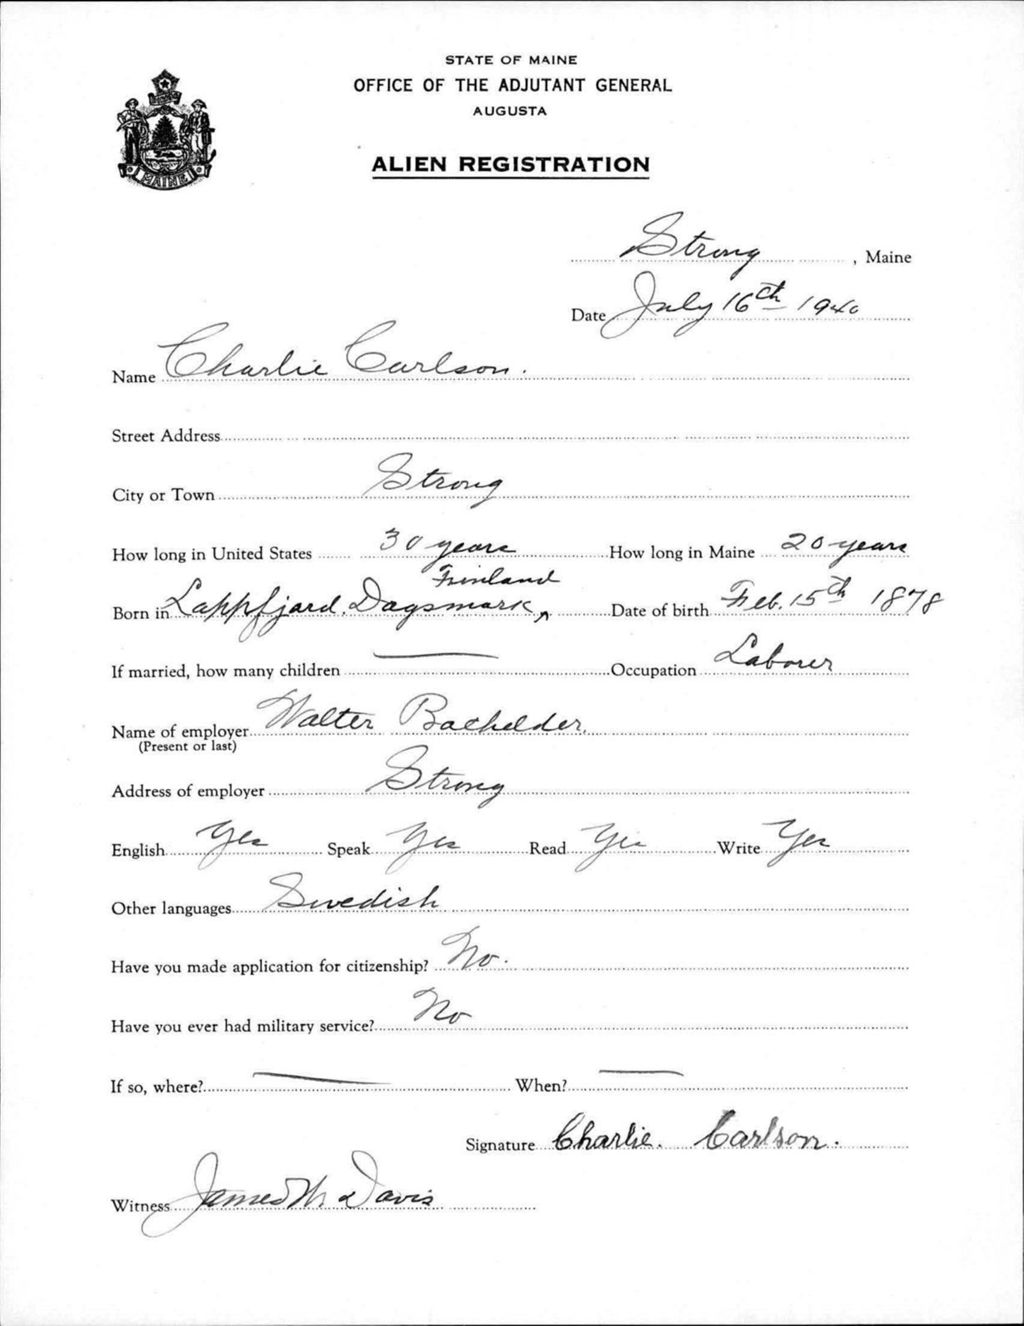 STATE OF MAINE
OFFICE OF THE ADJUTANT GENERAL
AUGUSTA
ALIEN REGISTRATION
MAINE
Strong, Maine
Date July 16th 1940
Name Charlie Carlson.
Street Address
City or Town Strong
How long in United States 30 years How long in Maine 20 years
Finland
Born in Lappfjard. Dagsmark ^ Date of birth Feb. 15th 1878
If married, how many children — Occupation Laborer
Name of employer Walter Bachelder.
(Present or last)
Address of employer Strong
English Yes Speak Yes Read Yes Write Yes
Other languages Swedish
Have you made application for citizenship? No.
Have you ever had military service? No
If so, where? — When? —
Signature Charlie. Carlson.
Witness James W. Davis